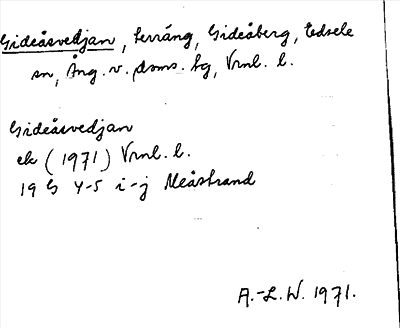 Gideåsvedjan, terräng, Gideåberg, Edsele
sn, Ång. v. doms. hg, Vrnl. l.
Gideåsvedjan
ek (1971) Vrnl. l.
19 G 4-5 i-j Meåstrand
A.-L. W. 1971.